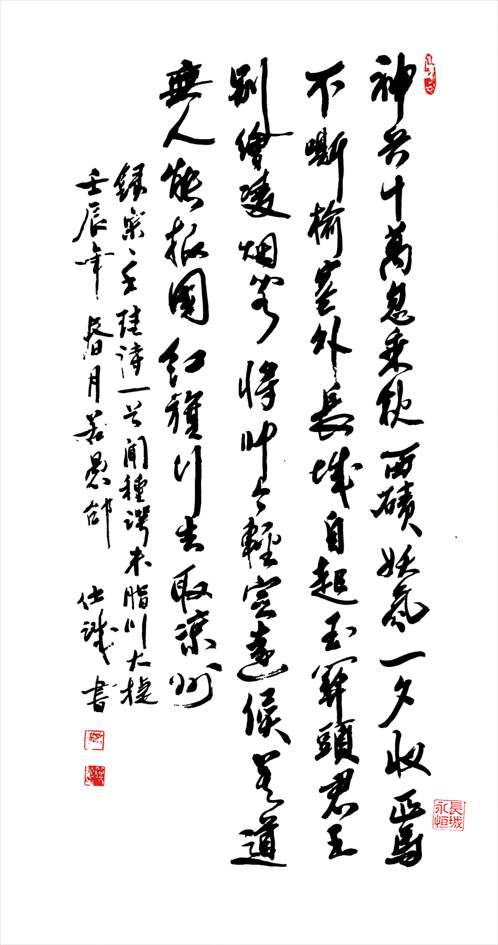 神兵十萬忽乘秋西磧妖氛一夕收匹馬
不嘶榆塞外長城自起玉關頭君王
别繪凌烟閣將帅今輕定遠侯莫道
無人能报國红旗行去取凉州
錄宋王珪诗一首聞種諤米脂川大捷
壬辰年春月若愚邰仕誠書
長城永恒